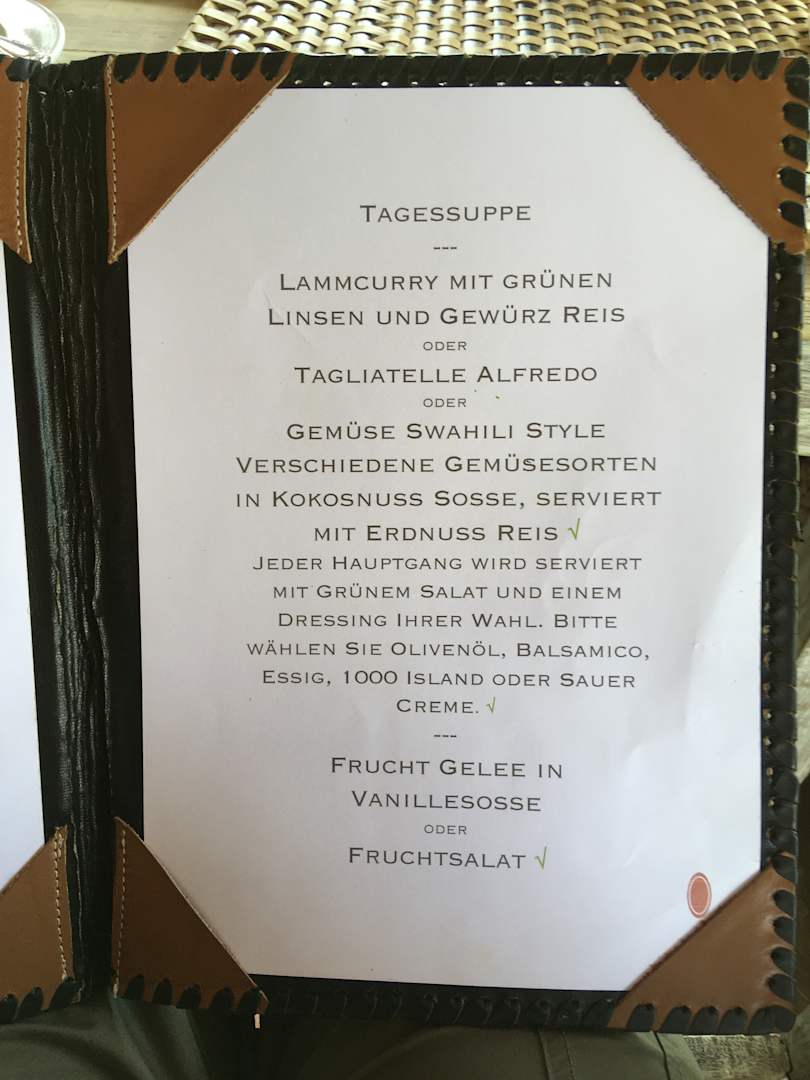 TAGESSUPPE
---
LAMMCURRY MIT GRÜNEN
LINSEN UND GEWÜRZ REIS
ODER
TAGLIATELLE ALFREDO
ODER
GEMÜSE SWAHILI STYLE
VERSCHIEDENE GEMÜSESORTEN
IN KOKOSNUSS SOSSE, SERVIERT
MIT ERDNUSS REIS √
JEDER HAUPTGANG WIRD SERVIERT
MIT GRÜNEM SALAT UND EINEM
DRESSING IHRER WAHL. BITTE
WÄHLEN SIE OLIVENÖL, BALSAMICO,
ESSIG, 1000 ISLAND ODER SAUER
CREME. √
---
FRUCHT GELEE IN
VANILLESOSSE
ODER
FRUCHTSALAT √